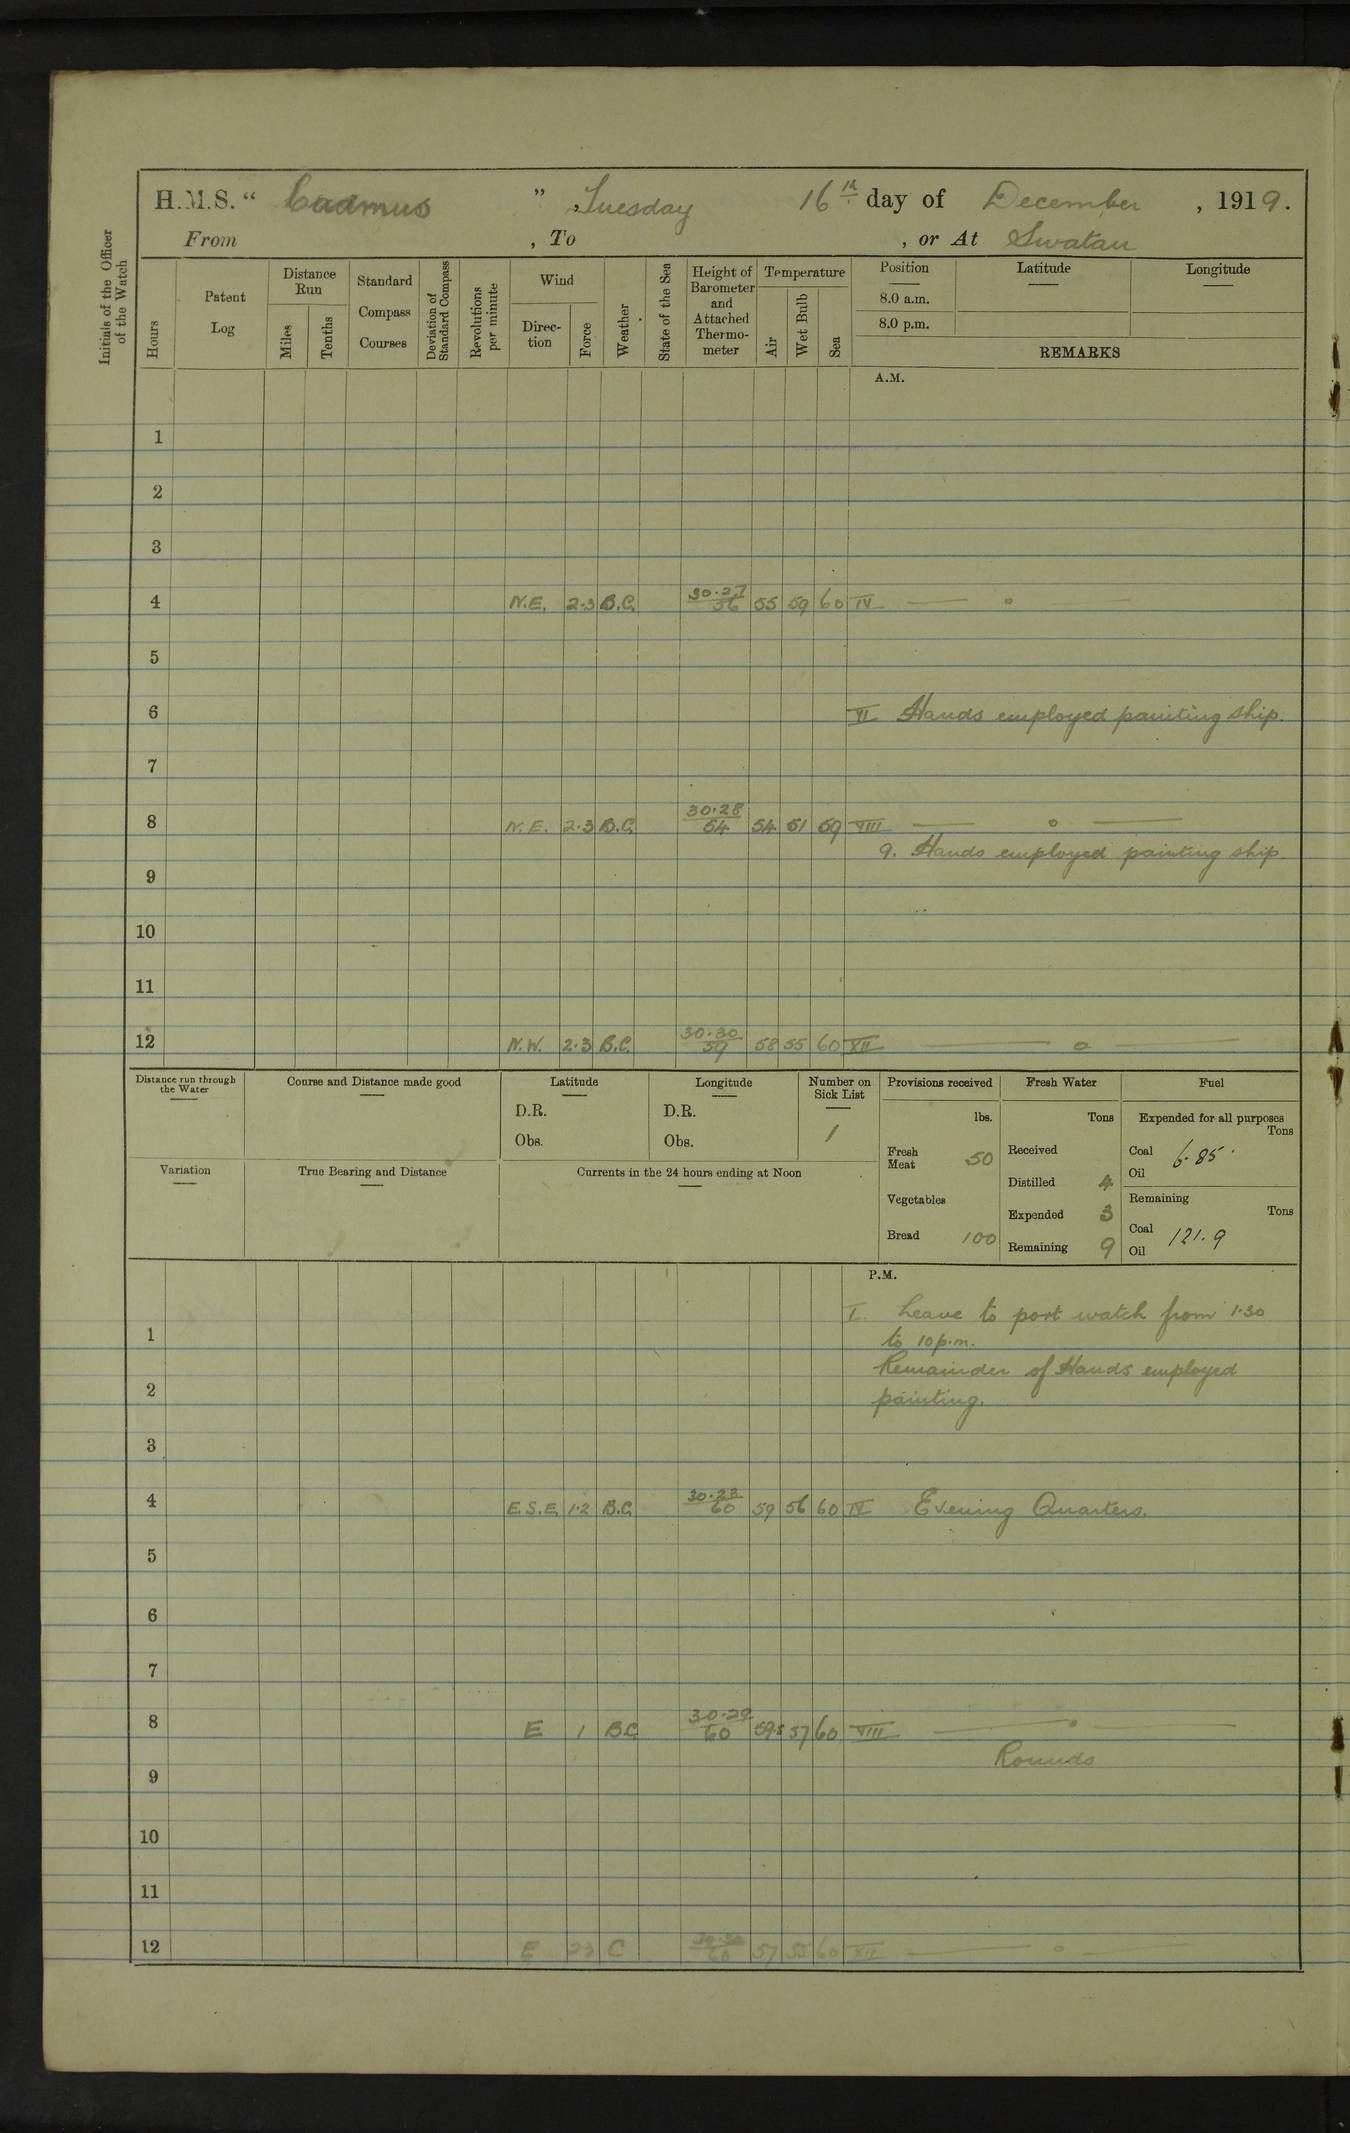 H.M.S. “ Cadmus ” , Tuesday 16th day of December , 1919.
From , To , or At Swatau
Initials of the Officer of the Watch
Hours
Patent Log
Distance Run
Miles
Tenths
Standard Compass Courses
Deviation of Standard Compass
Revolutions per minute
Wind
Direc-tion
Force
Weather
State of the Sea
Height of Barometer and Attached Thermo-meter
Temperature
Air
Wet Bulb
Sea
Position
8.0 a.m.
8.0 p.m.
Latitude
Longitude
REMARKS
A.M.
1
2
3
4 N.E. 2·3 B.C. 30·27 56 55 59 60 IV
5
6 VI Hands employed painting ship.
7
8 N.E. 2·3 B.C. 30·28 54 54 51 59 VIII
9. Hands employed painting ship
9
10
11
12 N.W. 2·3 B.C. 30·30 59 58 55 60 XII
Distance run through the Water
Course and Distance made good
Latitude
D.R.
Obs.
Longitude
D.R.
Obs.
Number on Sick List
1
Provisions received
lbs.
Fresh Meat 50
Vegetables
Bread 100
Fresh Water
Tons
Received
Distilled 4
Expended 3
Remaining 9
Fuel
Expended for all purposes
Tons
Coal 6·85
Oil
Remaining
Tons
Coal 121·9
Oil
Variation
True Bearing and Distance
Currents in the 24 hours ending at Noon
P.M.
I. Leave to port watch from 1·30
1 to 10 p.m.
Remainder of Hands employed
2 painting.
3
4 E.S.E. 1·2 B.C. 30·23 60 59 56 60 IV Evening Quarters.
5
6
7
8 E 1 B.C. 30·29 60 59·5 57 60 VIII
Rounds
9
10
11
12 E 23 C 30·30 60 57 55 60 XII